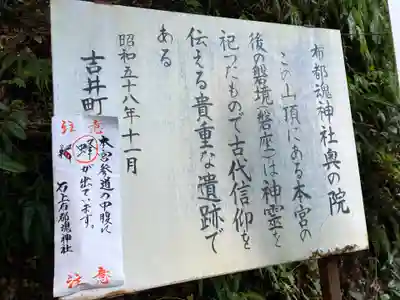 布都魂神社奥の院
この山頂にある本宮の
後の磐境(磐座)は神霊を
祀ったもので古代信仰を
伝える貴重な遺跡で
ある
昭和五十八年十一月
吉井町
注意
本宮参道の中腹に
蜂が出ています。
石上布都魂神社
注意